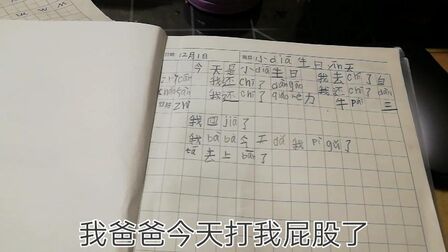 12月1日 小diā生日
今天是小diā生日 我去chī了自
我还chī了dàngāo 我还chī了dàn
我还chī了qiǎo kè力 牛pái
我回jiā了
我bà ba今天dǎ我pì gǔ了
bà去上bān了
我爸爸今天打我屁股了